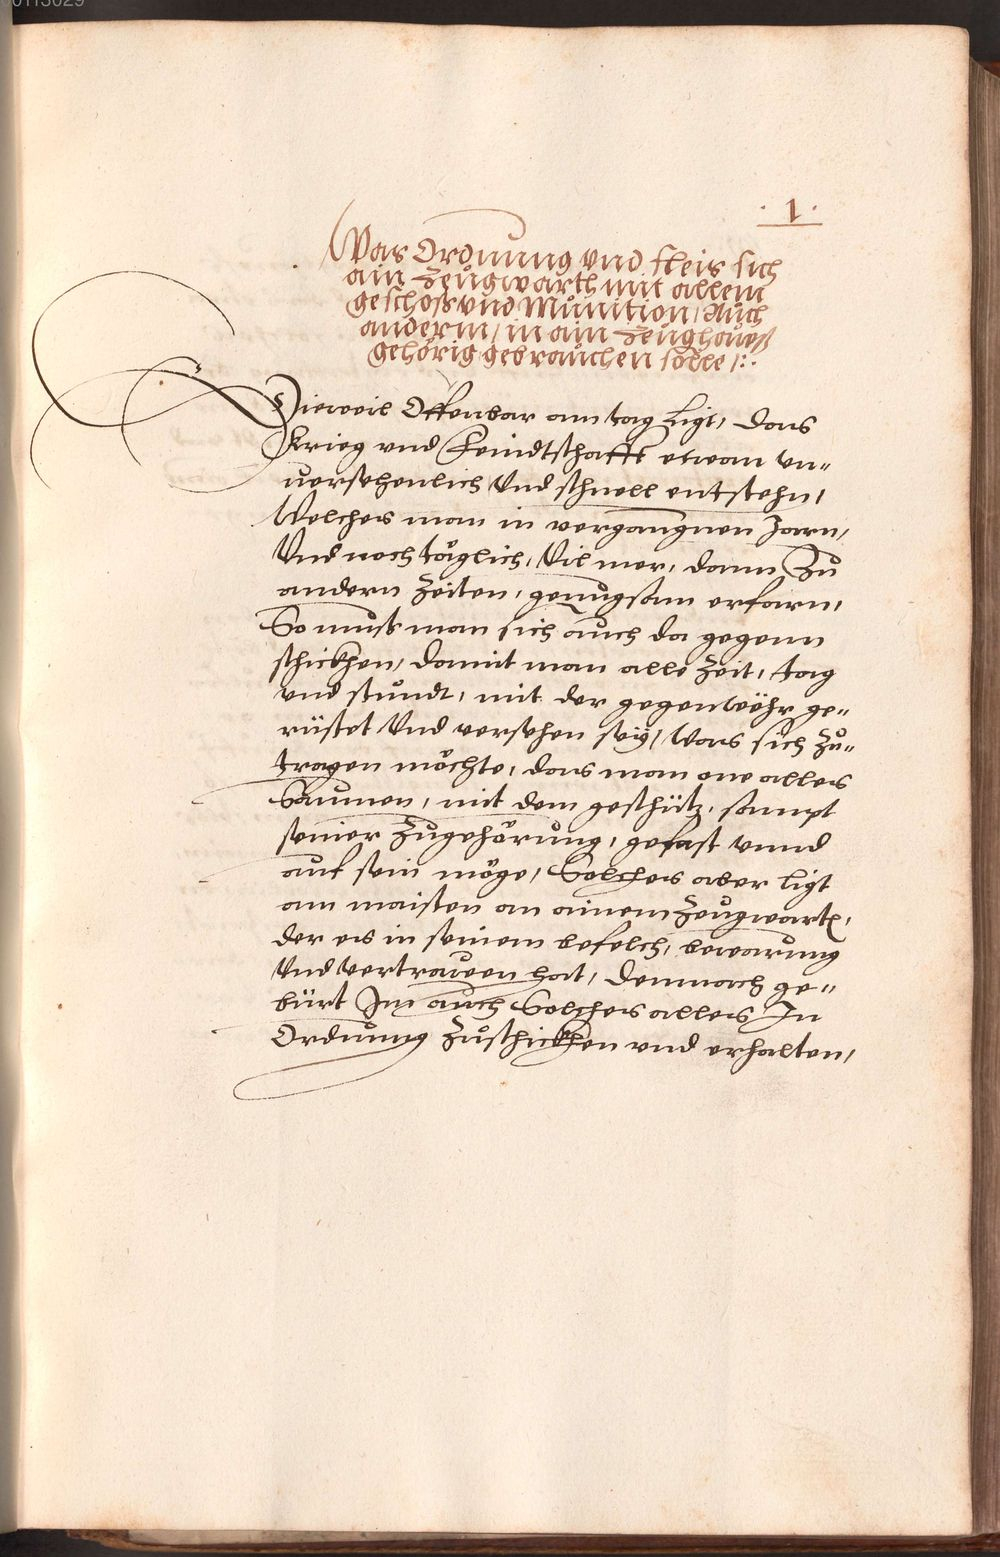 00113029
. 1 .
Was Ordnung vnd fleis sich
ain Zeugwarth mit allem
geschoss vnd Munition / Auch
anderm / in ain Zeughauss
gehörig gebrauchen solle /:.
Dieweil Offenbar am tag Ligt, das
Krieg vnd Feindtschafft etwan vn„
uersehenlich Vnd schnell entstehn,
Welches man in vergangnen Jarn,
Vnd noch täglich, Vil mer, dann Zů
andern Zeiten, genůgsam erfarn,
So muss man sich auch da gegenn
schickhen, damit man alle Zeit, tag
vnd stundt, mit der gegenwöhr ge„
rüstet Vnd versehen seÿ, Was sich Zů„
tragen möchte, das man one alles
Saumen, mit dem geschütz, sampt
seiner Zugehörung, gefast vnnd
auf sein möge, Solches aber ligt
am maisten an ainem Zeugwarth,
der es in seinem befelch, bewarung
Vnd vertrauen hat, Demnach ge„
bürt Im auch Solches alles In
Ordnung Zůschickhen vnd erhalten,